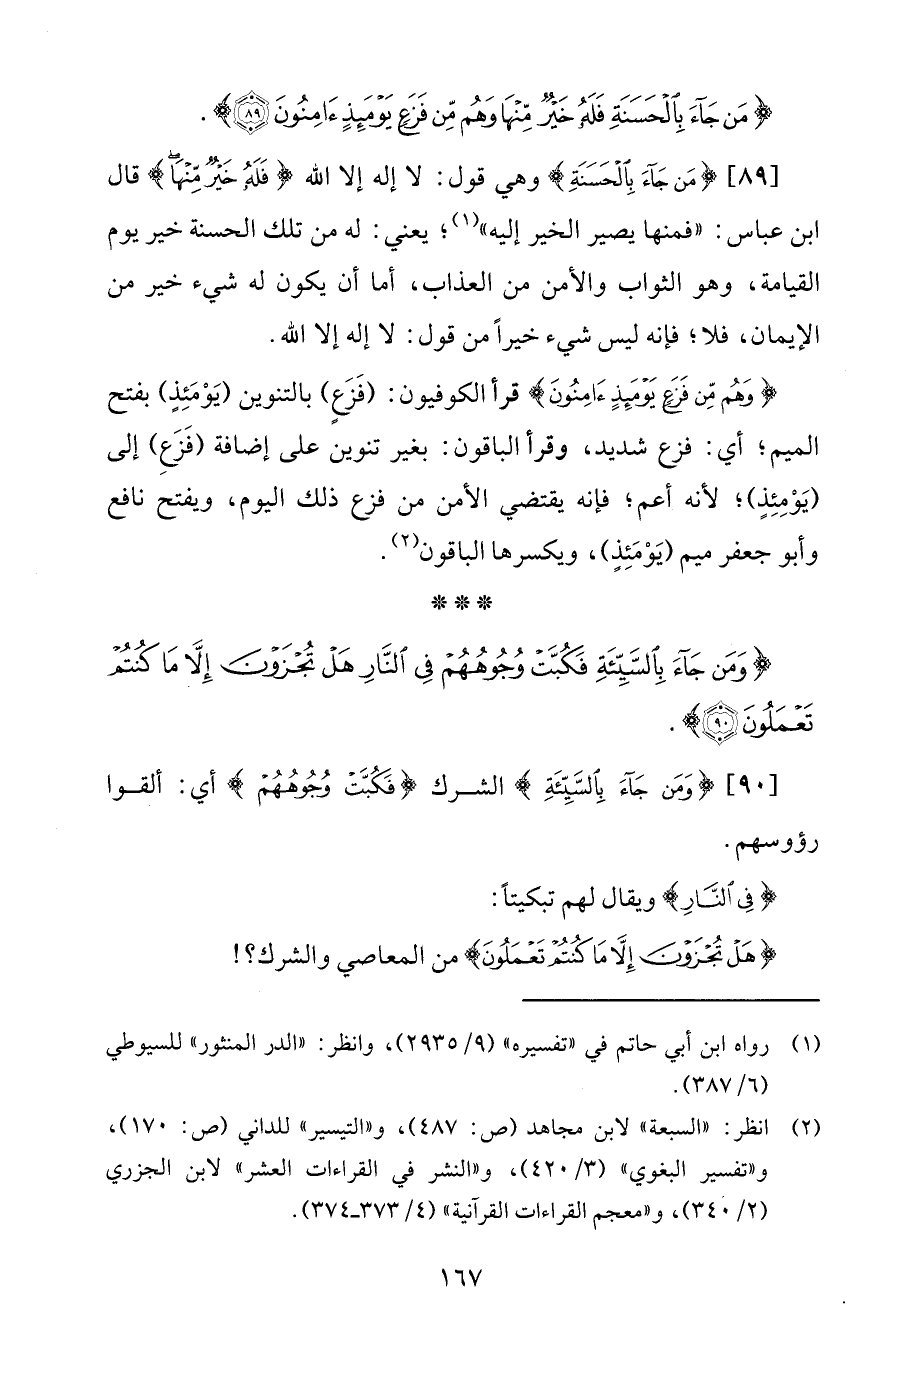 ﴿مَن جَآءَ بِٱلْحَسَنَةِ فَلَهُۥ خَيْرٌ مِّنْهَا وَهُم مِّن فَزَعٍ يَوْمَئِذٍ ءَامِنُونَ ۝٨٩﴾.
[٨٩] ﴿مَن جَآءَ بِٱلْحَسَنَةِ﴾ وهي قول: لا إله إلا الله ﴿فَلَهُۥ خَيْرٌ مِّنْهَا ۖ﴾ قال
ابن عباس: «فمنها يصير الخير إليه»(١)؛ يعني: له من تلك الحسنة خير يوم
القيامة، وهو الثواب والأمن من العذاب، أما أن يكون له شيء خير من
الإيمان، فلا؛ فإنه ليس شيء خيراً من قول: لا إله إلا الله.
﴿وَهُم مِّن فَزَعٍ يَوْمَئِذٍ ءَامِنُونَ﴾ قرأ الكوفيون: (فَزَعٍ) بالتنوين (يَوْمَئِذٍ) بفتح
الميم؛ أي: فزع شديد، وقرأ الباقون: بغير تنوين على إضافة (فَزَعِ) إلى
(يَوْمِئِذٍ)؛ لأنه أعم؛ فإنه يقتضي الأمن من فزع ذلك اليوم، ويفتح نافع
وأبو جعفر ميم (يَوْمَئِذٍ)، ويكسرها الباقون(٢).
* * *
﴿وَمَن جَآءَ بِٱلسَّيِّئَةِ فَكُبَّتْ وُجُوهُهُمْ فِى ٱلنَّارِ هَلْ تُجْزَوْنَ إِلَّا مَا كُنتُمْ
تَعْمَلُونَ ۝٩٠﴾.
[٩٠] ﴿وَمَن جَآءَ بِٱلسَّيِّئَةِ﴾ الشرك ﴿فَكُبَّتْ وُجُوهُهُمْ﴾ أي: ألقوا
رؤوسهم.
﴿فِى ٱلنَّارِ﴾ ويقال لهم تبكيتاً:
﴿هَلْ تُجْزَوْنَ إِلَّا مَا كُنتُمْ تَعْمَلُونَ﴾ من المعاصي والشرك؟!
(١) رواه ابن أبي حاتم في «تفسيره» (٩/ ٢٩٣٥)، وانظر: «الدر المنثور» للسيوطي
(٦/ ٣٨٧).
(٢) انظر: «السبعة» لابن مجاهد (ص: ٤٨٧)، و«التيسير» للداني (ص: ١٧٠)،
و«تفسير البغوي» (٣/ ٤٢٠)، و«النشر في القراءات العشر» لابن الجزري
(٢/ ٣٤٠)، و«معجم القراءات القرآنية» (٤/ ٣٧٣ـ٣٧٤).
١٦٧